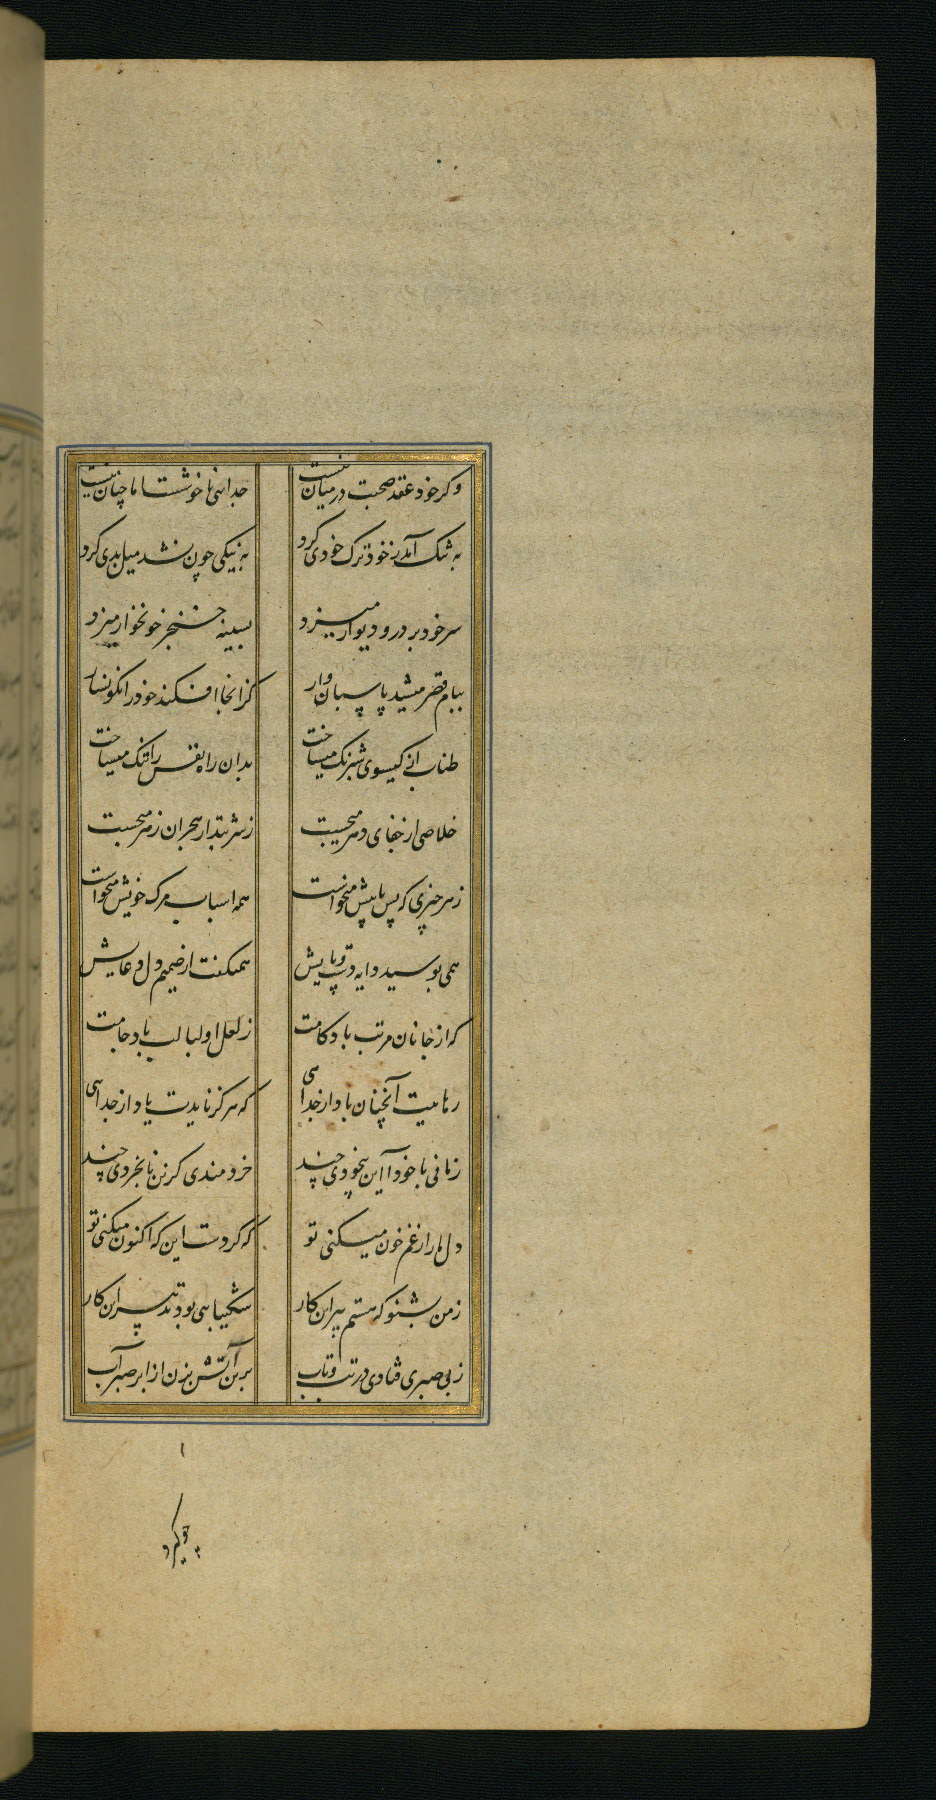 وگر خود عقد صحبت در میان نیست جدایی ناخوشست اما چنان نیست
به تنک آمد ز خود ترک خودی کرد به نیکی چون نشد میل بدی کرد
سر خود بر در و دیوار میزد بسینه خنجر خونخوار میزد
ببام قصر میشد پاسبان وار کز انجا افکند خود را نکونسار
طناب از کیسوی شبرنک میساخت بدان راه نفس را تنک میساخت
خلاصی از جفای دهر میجست ز شربتدار هجران زهر میجست
ز هر چیزی که پس یا پیش میخواست همه اسباب مرک خویش میخواست
همی بوسید دایه دست و پایش همیکفت از صمیم دل دعایش
که از جانان مرتب باد کامت ز لعل او لبالب باد جامت
رهاییت آنچنان باد از جدایی که هرکز نایدت یاد از جدایی
زمانی با خود آ این بیخودی چند خردمندی کزین نابخردی چند
دل ما را ز غم خون میکنی تو که کردست این که اکنون میکنی تو
ز من بشنو که هستم پیر این کار شکیبایی بود تدبیر این کار
ز بی صبری فتادی در تب و تاب برین آتش بزن از ابر صبر آب
چو گیرد